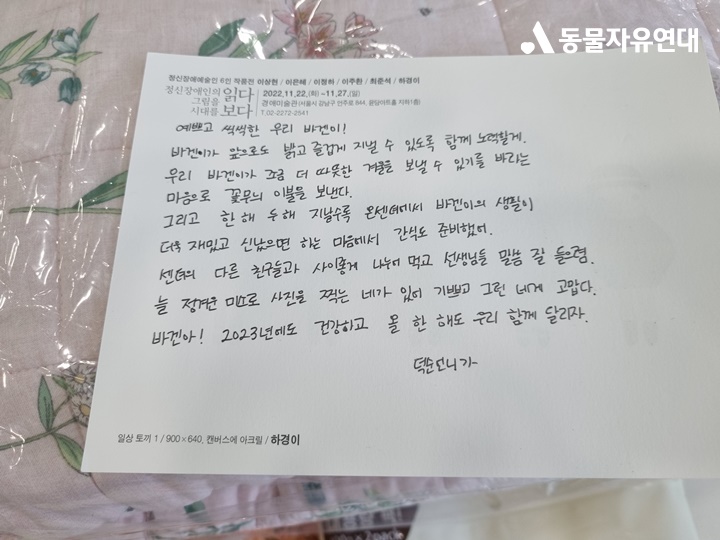 동물자유연대
정신장애예술인 6인 작품전 이상현 / 이은혜 / 이정하 / 이주환 / 최준석 / 하경이
정신장애인의 읽다
그림을
시대를 보다
2022.11.22.(화)~11.27.(일)
경애미술관(서울시 강남구 안주로 844, 광담아트홀 지하1층)
T.02-2272-2541
예쁘고 씩씩한 우리 바겐이!
바겐이가 앞으로도 밝고 즐겁게 지낼 수 있도록 함께 노력할게.
우리 바겐이가 조금 더 따뜻한 겨울을 보낼 수 있기를 바라는
마음으로 꽃무늬 이불을 보낸다.
그리고 한해 두해 지날수록 온센터에서 바겐이의 생활이
더욱 재밌고 신났으면 하는 마음에서 간식도 준비했어.
센터의 다른 친구들과 사이좋게 나누어 먹고 선생님들 말씀 잘 들으렴.
늘 정겨운 미소로 사진을 찍는 네가 있어 기쁘고 그런 네게 고맙다.
바겐아! 2023년에도 건강하고 올 한 해도 우리 함께 달리자.
덕순언니가
일상 토끼 1 / 900×640, 캔버스에 아크릴 / 하경이